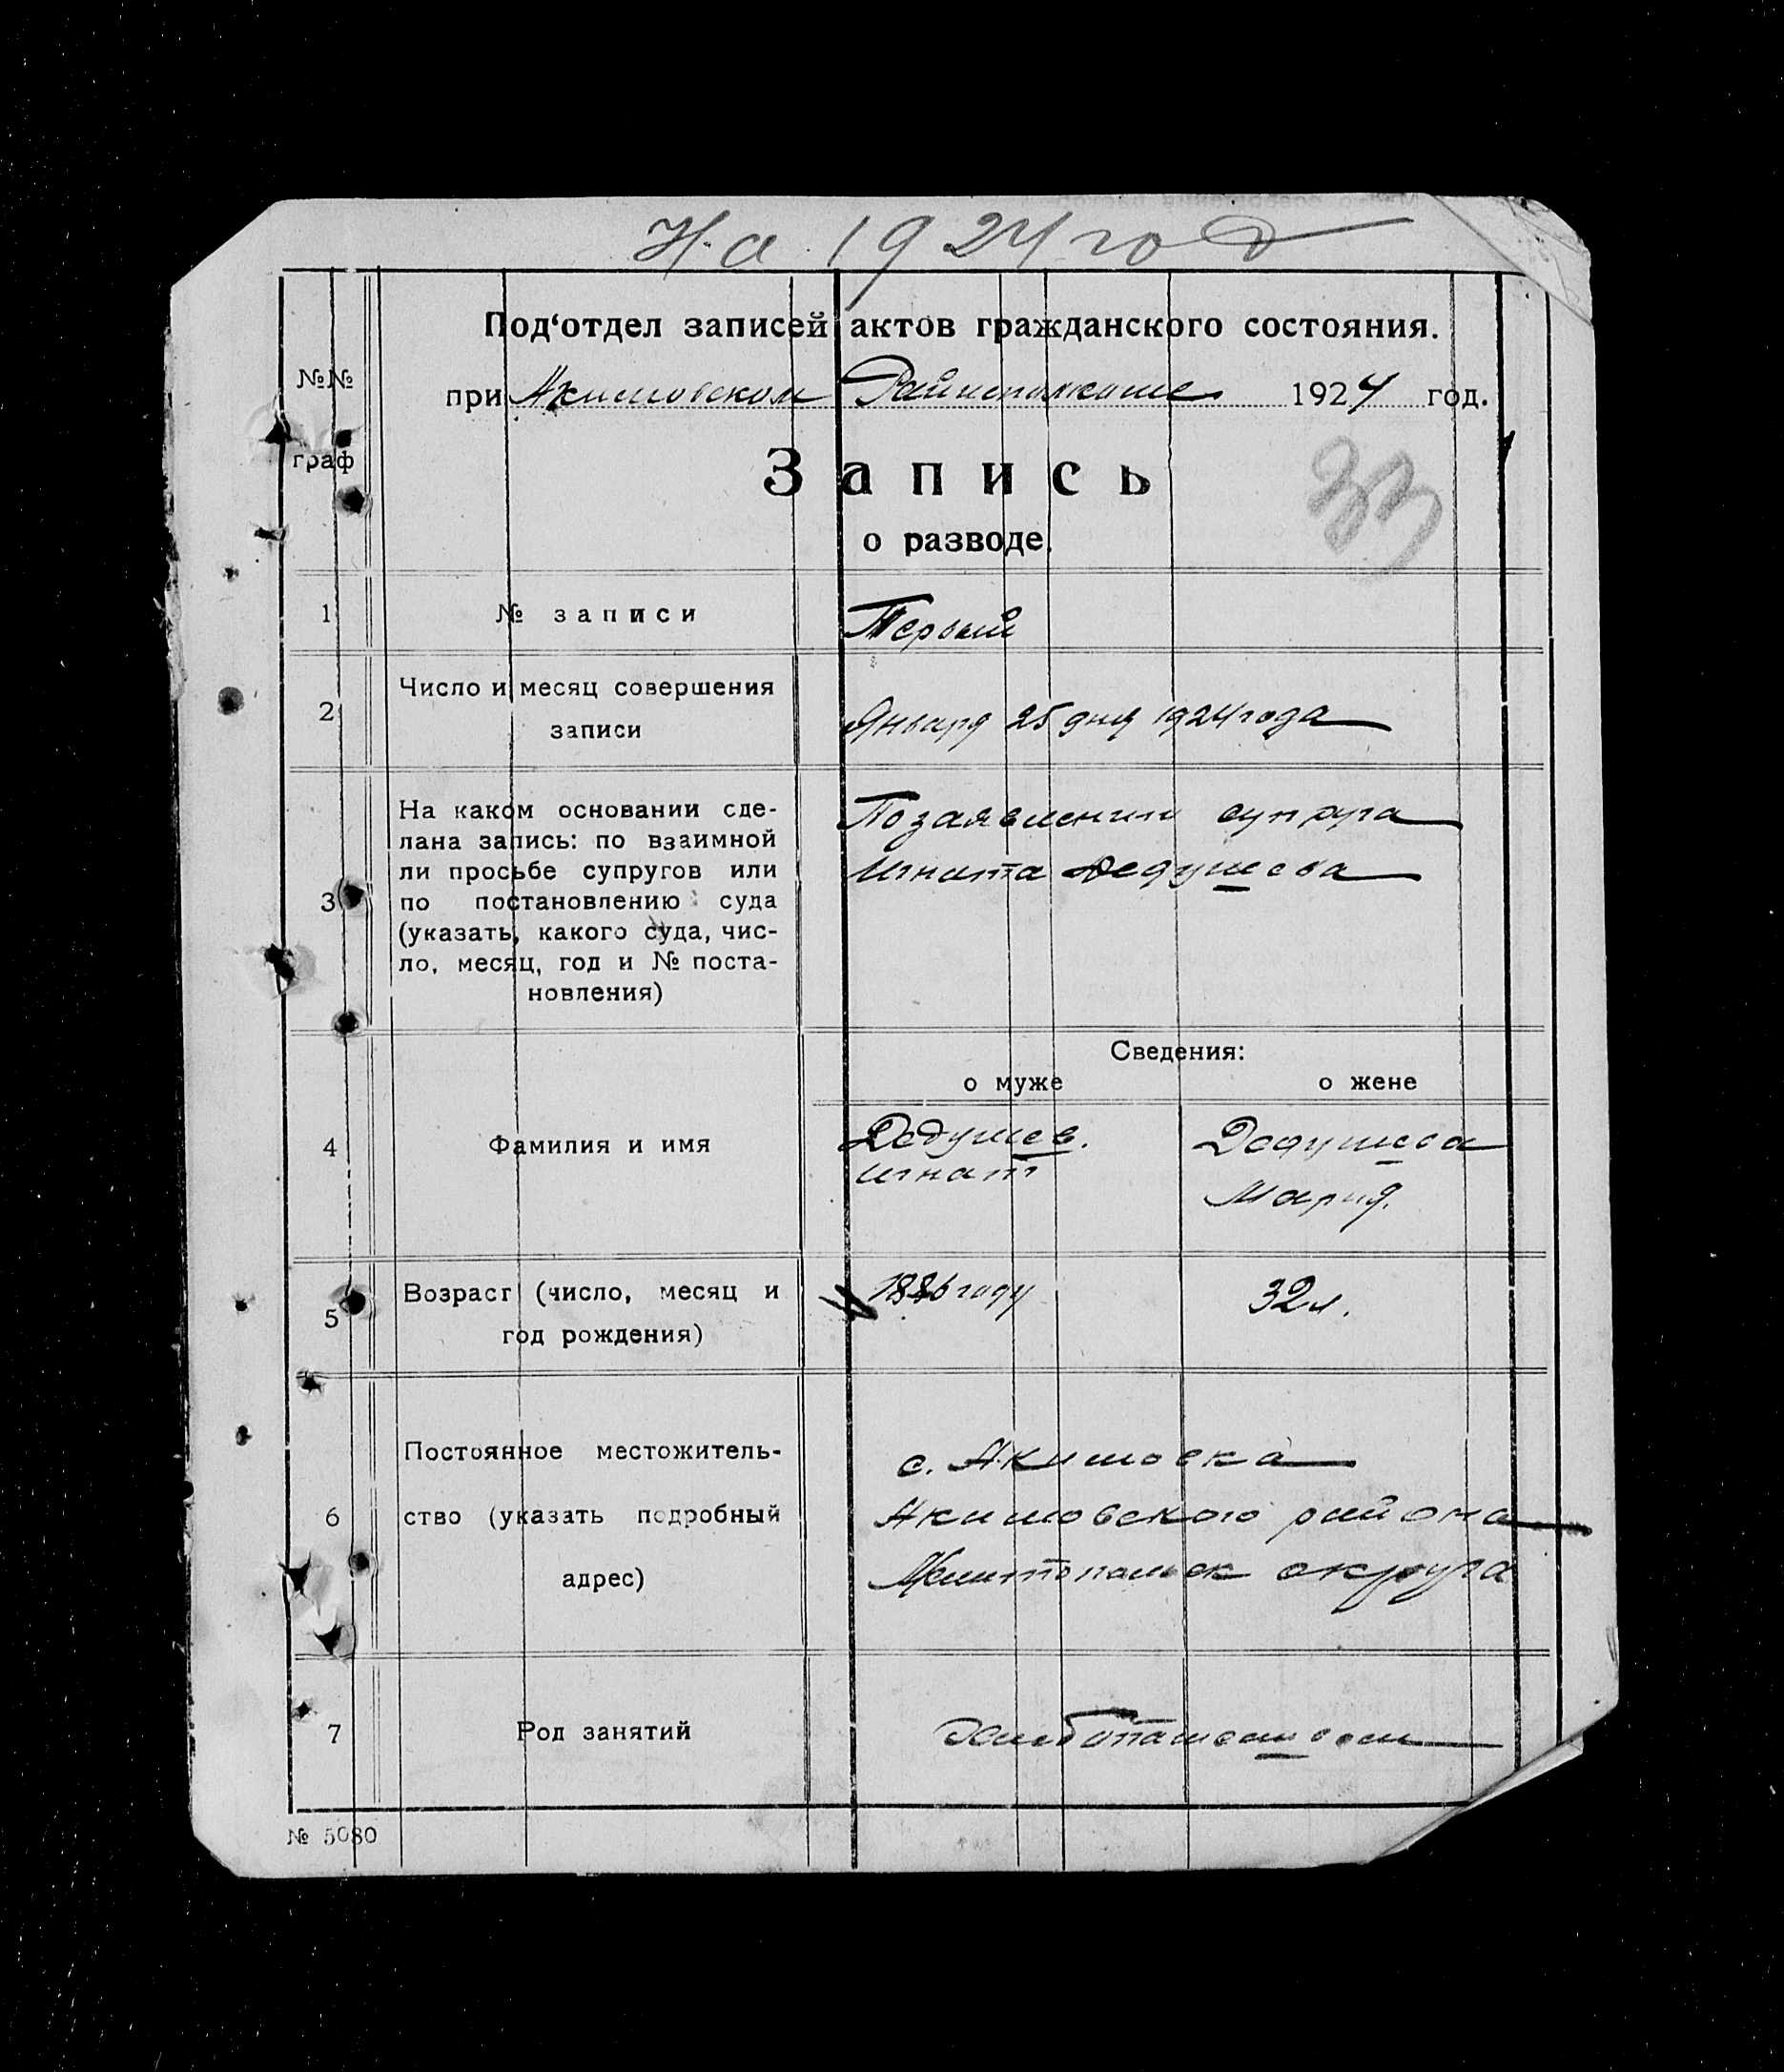 На 1924 год
Под‘отдел записей актов гражданского состояния.
№№
граф
при Акимовском Райисполкоме 1924 год.
Запись
33
о разводе.
1 № записи Первый
2 Число и месяц совершения
записи
Января 25 дня 1924 года
3 На каком основании сде-
лана запись: по взаимной
ли просьбе супругов или
по постановлению суда
(указать, какого суда, чис-
ло, месяц, год и № поста-
новления)
По заявлению супруга
Игната Дедушева
Сведения:
о муже о жене
4 Фамилия и имя
Дедушев.
Игнат
Дедушева
Мария.
5 Возраст (число, месяц и
год рождения)
1886 году
32 л.
6 Постоянное местожитель-
ство (указать подробный
адрес)
с. Акимовка
Акимовского района
округа
7 Род занятий
Хлебопашеством
№ 5080